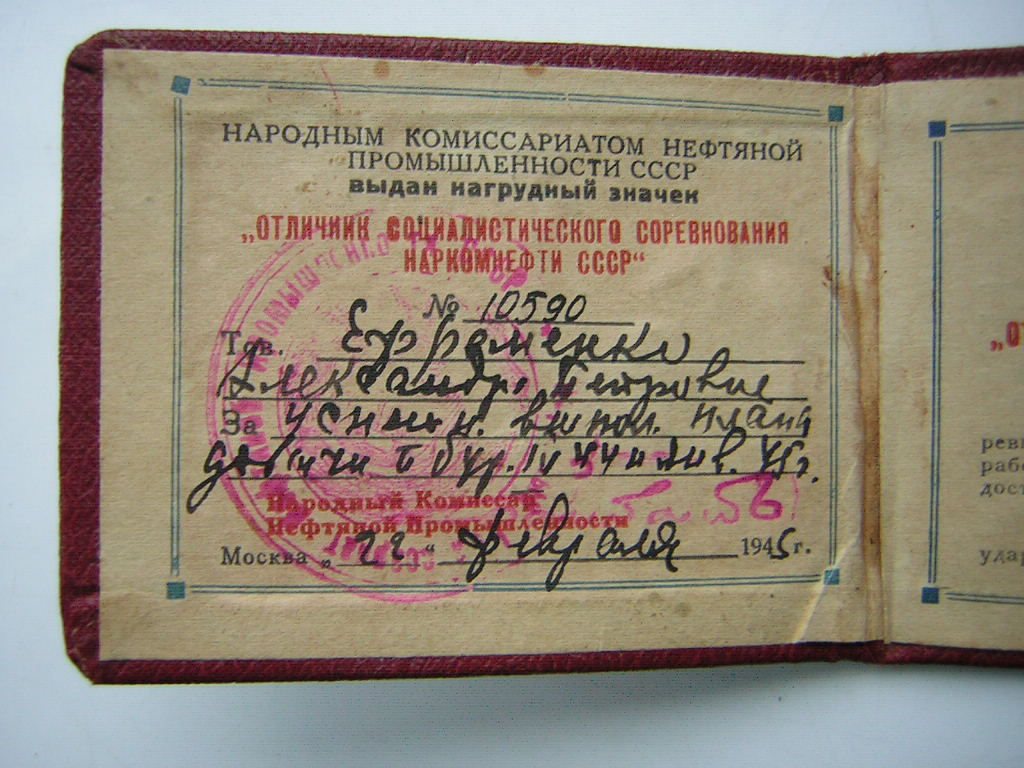 НАРОДНЫМ КОМИССАРИАТОМ НЕФТЯНОЙ
ПРОМЫШЛЕННОСТИ СССР
выдан нагрудный значек
„ОТЛИЧНИК СОЦИАЛИСТИЧЕСКОГО СОРЕВНОВАНИЯ
НАРКОМНЕФТИ СССР“
№ 10590
Тов. Ефременко
Александр Петрович
За успешн. выпол. плана
добычи и бур. IV
Народный Комиссар
Нефтяной Промышленности
Москва „22“ февраля 1945 г.
„О
рев
рабо
дост
удар